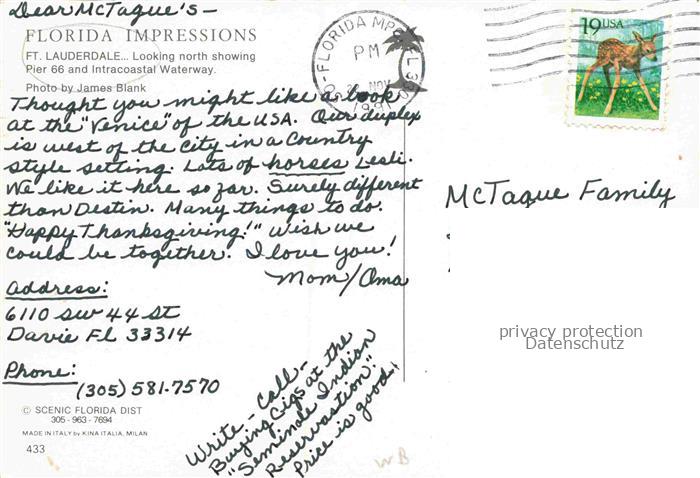 Dear McTague's –
FLORIDA IMPRESSIONS
FT. LAUDERDALE... Looking north showing
Pier 66 and Intracoastal Waterway.
Photo by James Blank
Thought you might like a look
at the "Venice" of the USA. Our duplex
is west of the city in a country
style setting. Lots of horses Lesli.
We like it here so far. Surely different
than Destin. Many things to do.
"Happy Thanksgiving!" Wish we
could be together. I love you!
Mom/Oma
Address:
6110 SW 44 St
Davie Fl 33314
Phone:
(305) 581-7570
Write – Call –
Buying Cigs at the
"Seminole Indian
Reservastion."
Price is good.
© SCENIC FLORIDA DIST
305 - 963 - 7694
MADE IN ITALY by KINA ITALIA, MILAN
433
WB
FLORIDA MPC FL
PM
NOV
19 USA
McTague Family
privacy protection
Datenschutz